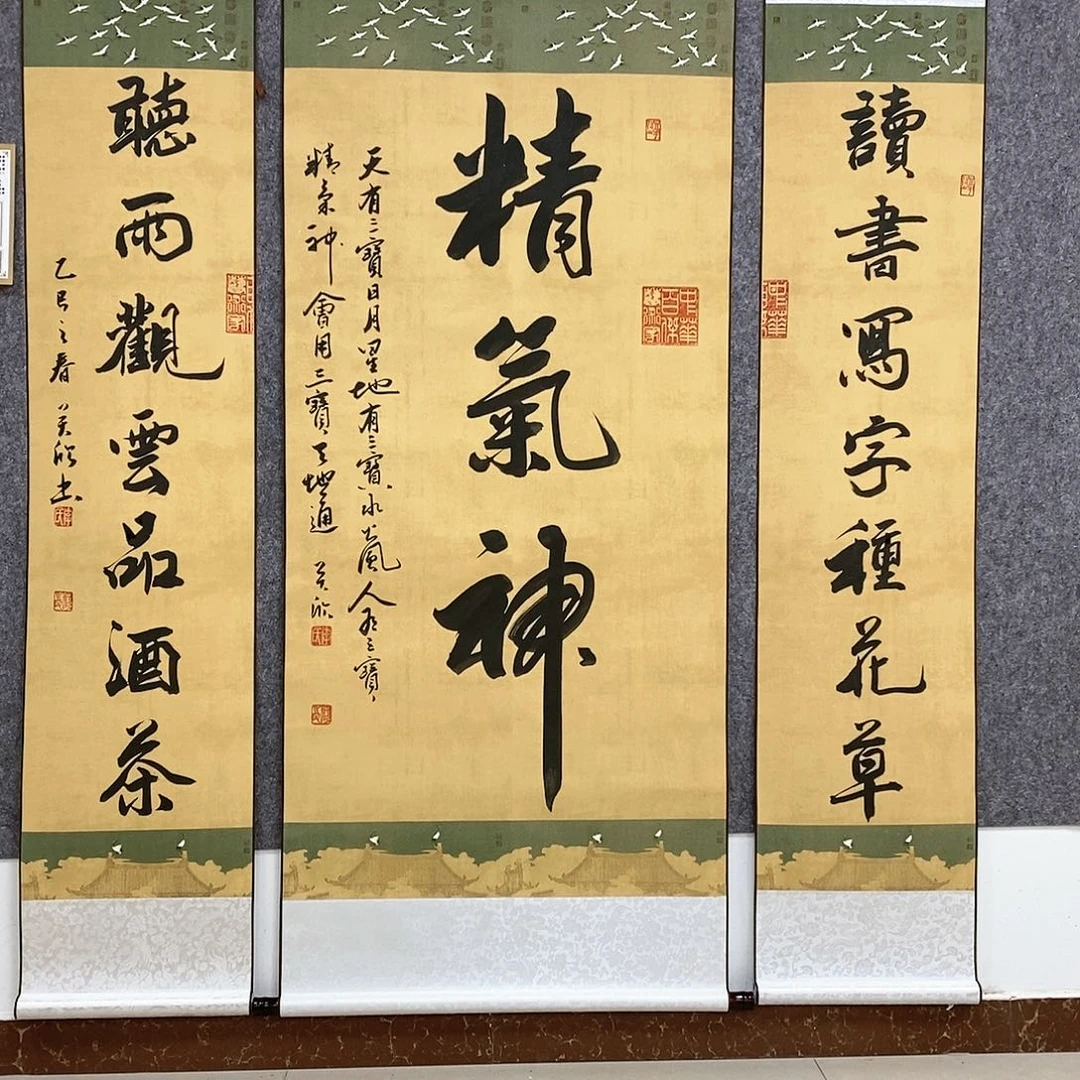 讀書寫字種花草
精氣神
天有三寶日月星地有三寶水火風人有三寶
精氣神會用三寶天地通
中華
百傑
聽雨觀雲品酒茶
乙巳之春